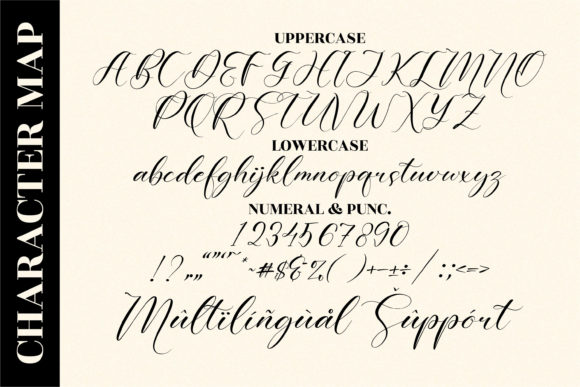 CHARACTER MAP
UPPERCASE
ABCDEFGHIJKLMNO
PQRSTUVWXYZ
LOWERCASE
abcdefghijklmnopqrstuvwxyz
NUMERAL & PUNC.
1234567890
!?"„“”‘’´*~#$&%()+−±÷/:;<=>
Mûltïlíñgùål Šûppórt